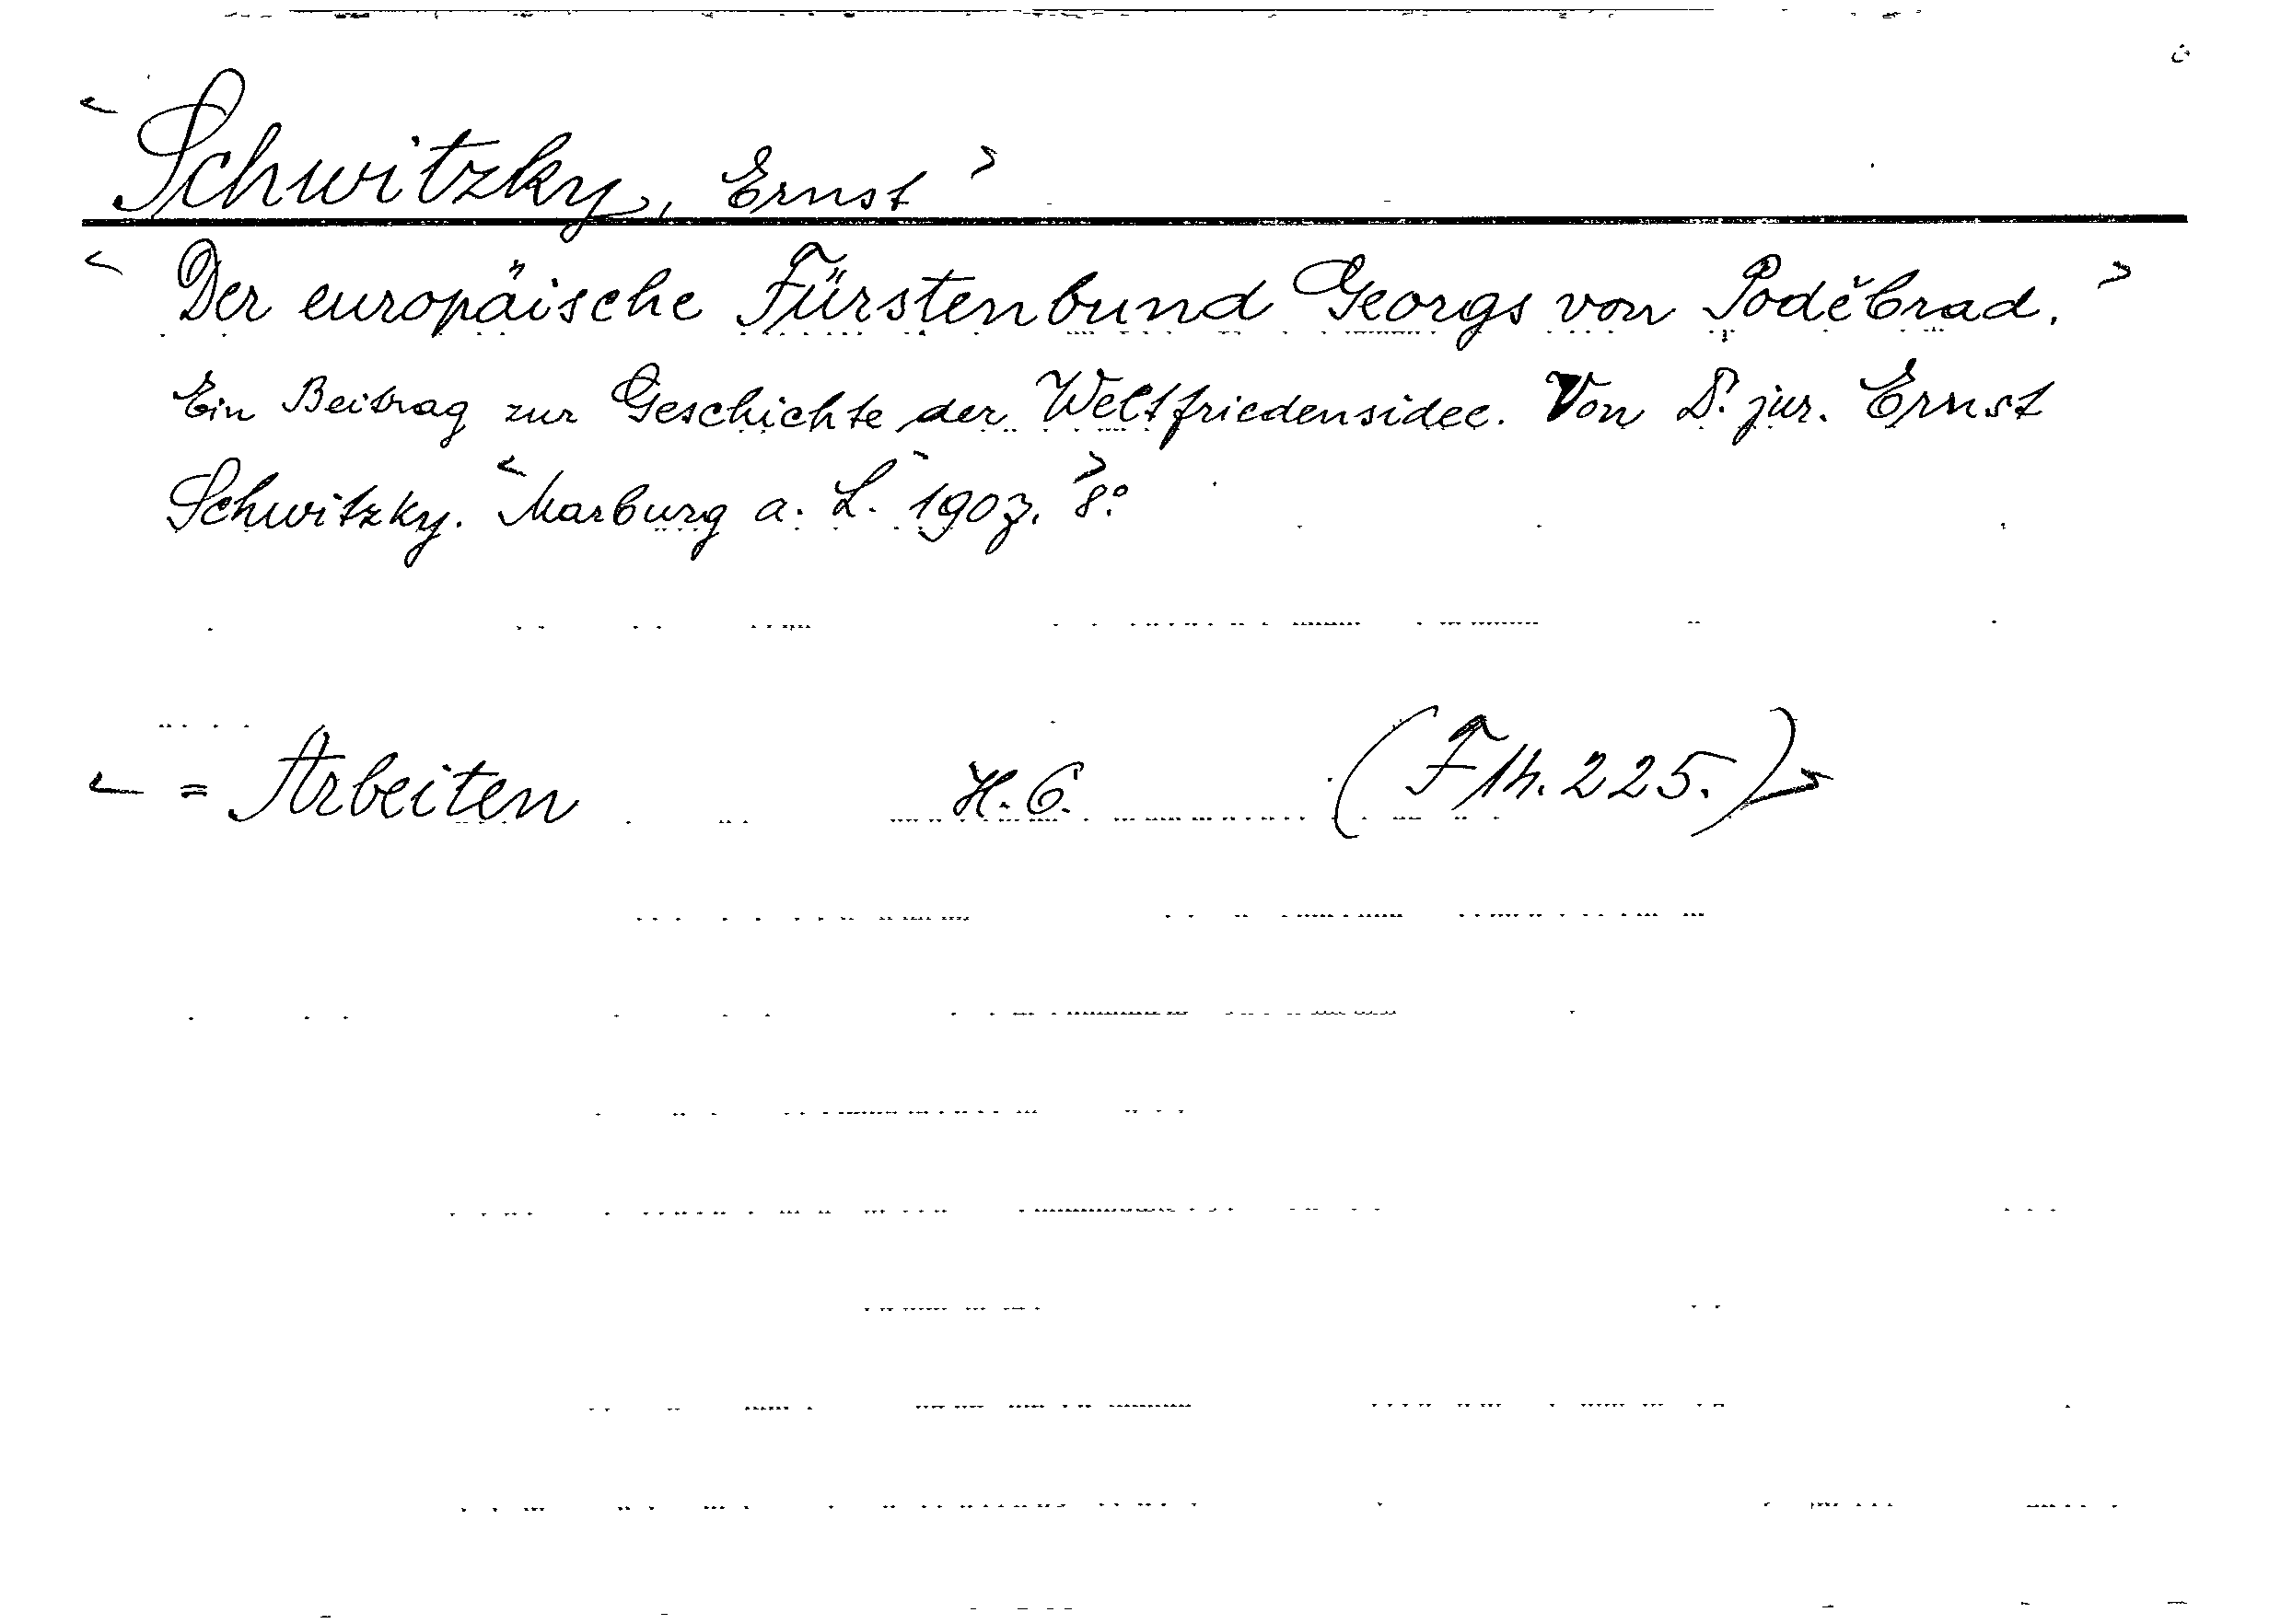 < Schwitzky, Ernst >
< Der europäische Fürstenbund Georgs von Poděbrad. >
Ein Beitrag zur Geschichte der Weltfriedensidee. Von Dr. jur. Ernst
Schwitzky. < Marburg a. L. 1907. > 8°
< = Arbeiten H. 6. (F 1h. 225.) >